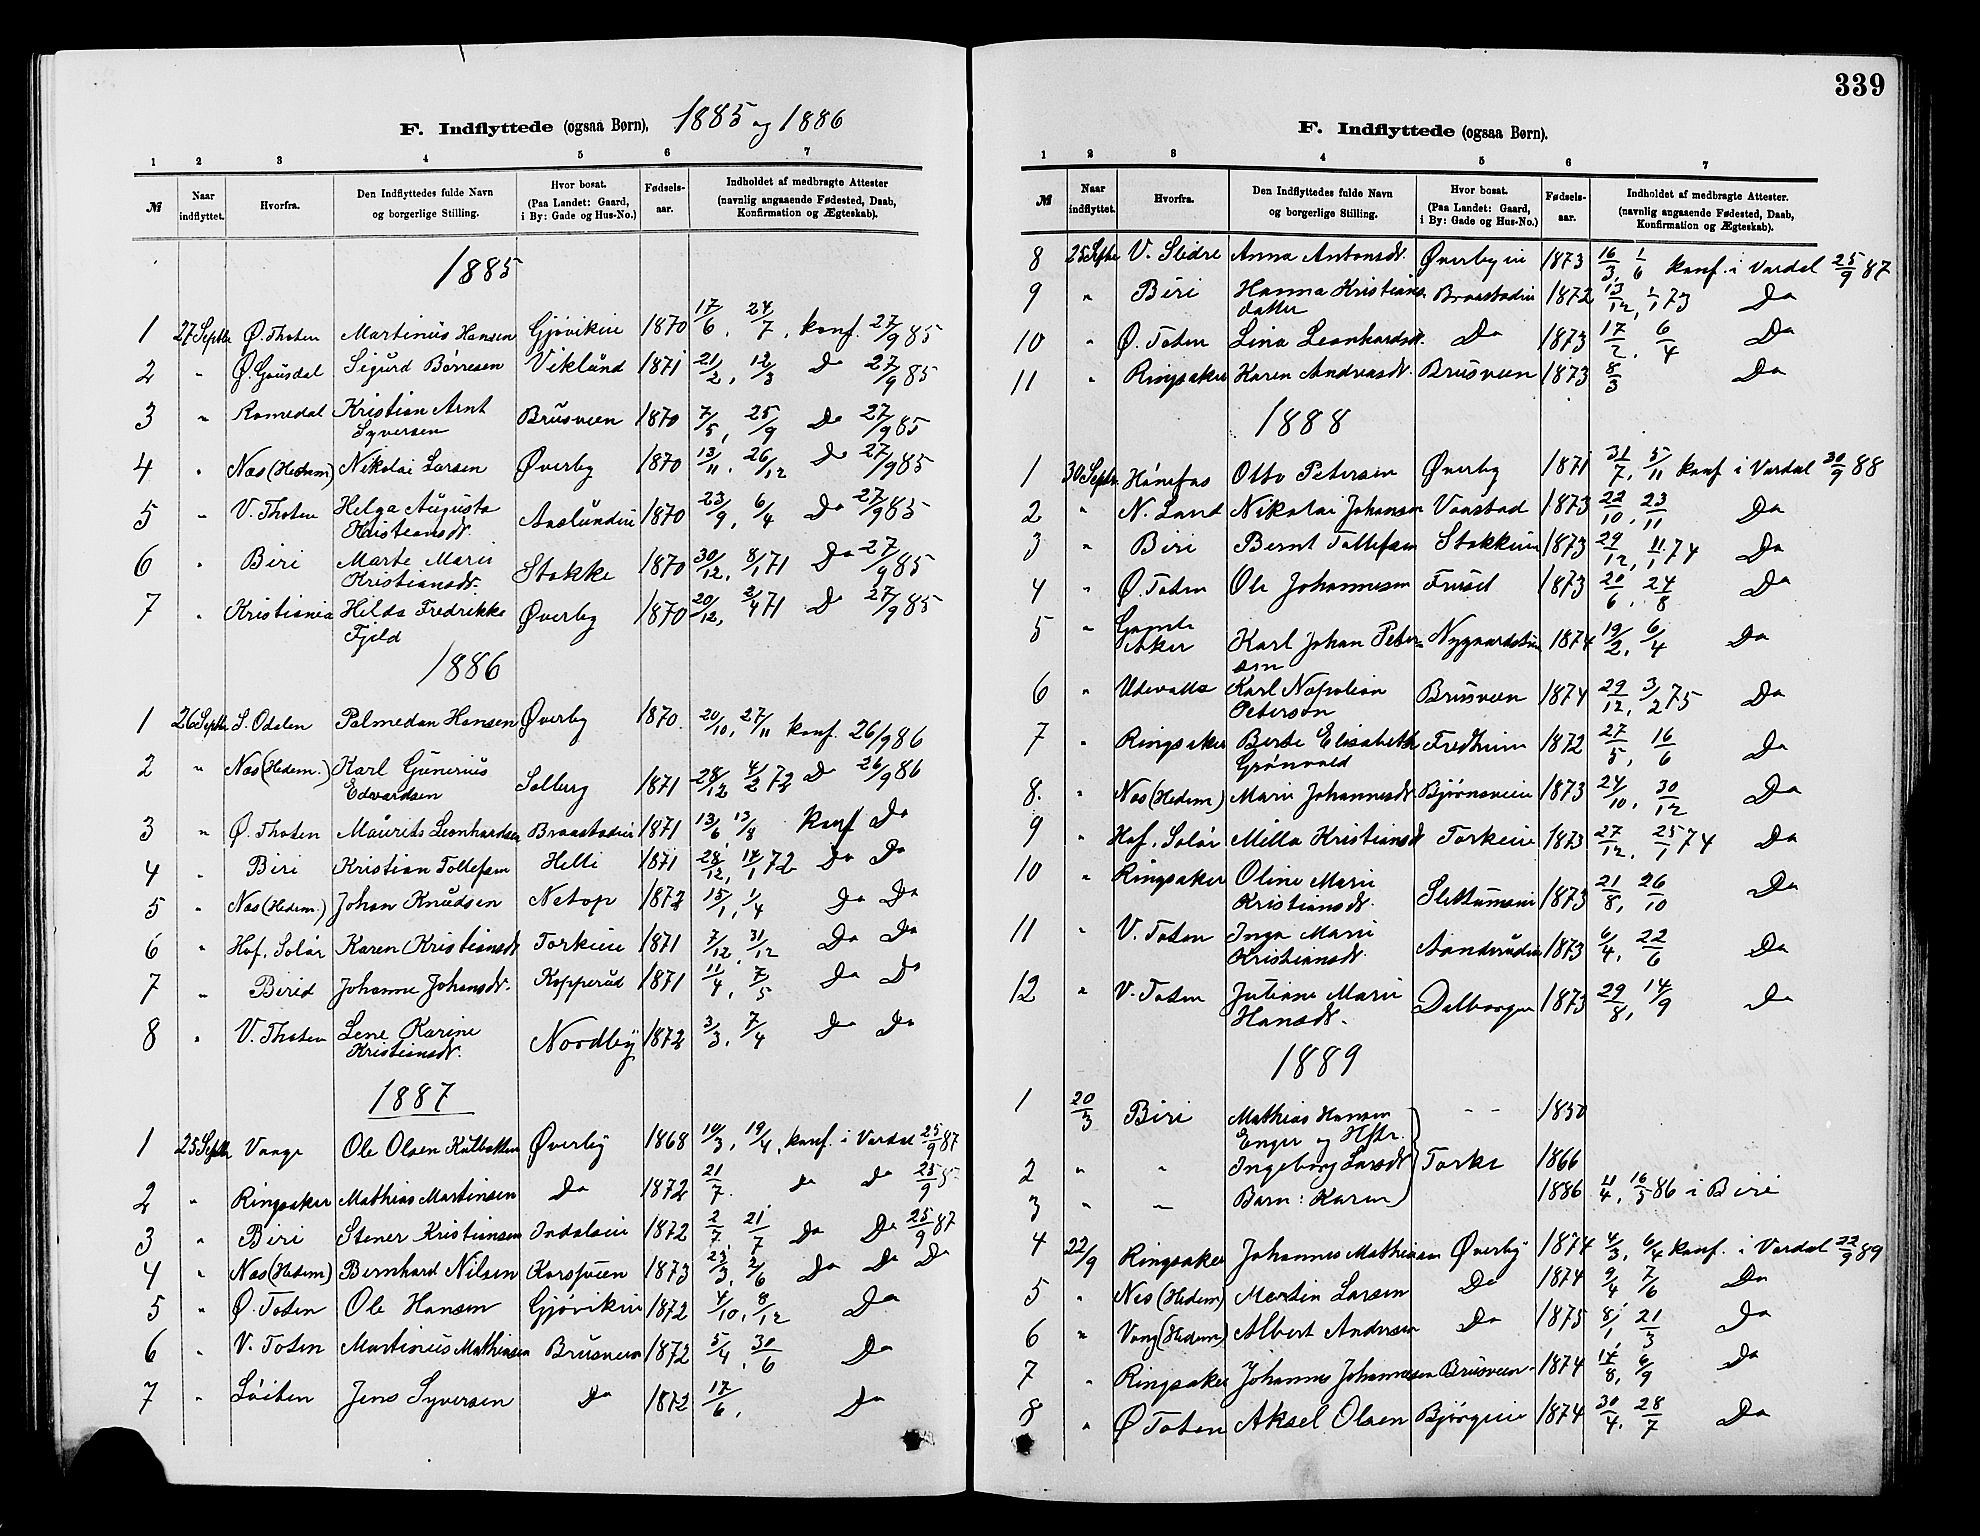 F. Indflyttede (ogsaa Børn). 1885 og 1886
1 2 3 4 5 6 7
№ Naar indflyttet. Hvorfra. Den Indflyttedes fulde Navn og borgerlige Stilling. Hvor bosat. (Paa Landet: Gaard, i By: Gade og Hus-No.) Fødsels-aar. Indholdet af medbragte Attester (navnlig angaaende Fødested, Daab, Konfirmation og Ægteskab).
1885
1 27 Septbr Ø. Thoten Martinius Hansen Gjøvikeie 1870 17/6, 24/7, konf. 27/9 85
2 " Ø. Gausdal Sigurd Børresen Viklund 1871 21/2, 12/3 Do 27/9 85
3 " Romedal Kristian Arnt Syversen Brusveen 1870 7/5, 25/9 Do 27/9 85
4 " Næs (Hedem) Nikolai Larsen Øverby 1870 13/11, 26/12 Do 27/9 85
5 " V. Thoten Helga Augusta Kristiansdt. Aaslundeie 1870 23/9, 6/4 Do 27/9 85
6 " Biri Marte Marie Kristiansdt. Stokke 1870 30/12, 8/1 71 Do 27/9 85
7 " Kristiania Hilda Fredrikke Fjeld Øverby 1870 20/12, 2/4 71 Do 27/9 85
1886
1 26 Septbr S. Odalen Palmedan Hansen Øverby 1870 20/10, 27/11 konf. 26/9 86
2 " Næs (Hedem.) Karl Gunerius Edvardsen Solberg 1871 28/12 4/2 72 Do 26/9 86
3 " Ø. Thoten Maurits Leonhardsen Braastadeie 1871 13/6 13/8 konf Do
4 " Biri Kristian Tollefsen Helli 1871 28/12, 14/1 72 Do Do
5 " Næs (Hedem.) Johan Knudsen Netop 1872 15/1, 1/4 Do Do
6 " Hof, Solør Karen Kristiansdt Torkeie 1871 7/12, 31/12 Do Do
7 " Birid Johanne Johansdt. Kopperud 1871 11/4, 7/5 Do Do
8 " V. Thoten Lene Karine Kristiansdt. Nordby 1872 3/3, 7/4 Do Do
1887
1 25 Septbr Vaage Ole Olsen Kulbakken Øverby 1868 10/3, 19/4, konf. i Vardal 25/9 87
2 " Ringsaker Mathias Martinsen Do 1872 21/7. Do Do 25/9
3 " Biri Stener Kristiansen Indalseie 1872 2/7, 21/7 Do Do 25/9 87
4 " Næs (Hedem) Bernhard Nilsen Korsveen 1873 23/3, 2/6 Do Do Do
5 " Ø. Toten Ole Hansen Gjøvikeie 1872 4/10, 8/12 Do
6 " V. Toten Martinius Mathiasen Brusveen 1872 5/4, 30/6 Do
7 " Løiten Jens Syversen Do 1872 17/6, Do
339
F. Indflyttede (ogsaa Børn).
1 2 3 4 5 6 7
№ Naar indflyttet. Hvorfra. Den Indflyttedes fulde Navn og borgerlige Stilling. Hvor bosat. (Paa Landet: Gaard, i By: Gade og Hus-No.) Fødsels-aar. Indholdet af medbragte Attester. (navnlig angaaende Fødested, Daab, Konfirmation og Ægteskab).
8 25 Septbr V. Slidre Anna Antonsdt. Øverbyeie 1873 16/3, 1/6 konf. i Vardal 25/9 87
9 " Biri Hanna Kristiansdatter Braastadeie 1872 13/12, 1/1 73 Do
10 " Ø. Toten Lina Leonhardsdt. Do 1873 17/2, 6/4 Do
11 " Ringsaker Karen Andreasdt. Brusveen 1873 8/3 Do
1888
1 30 Septbr. Hønefos Otto Petersen Øverby 1871 31/7, 5/11 konf i Vardal 30/9 88
2 " N. Land Nikolai Johansen Vaastad 1873 22/10, 23/11 Do
3 " Biri Bernt Tollefsen Stokkeeie 1873 29/12, 11/1 74 Do
4 " Ø. Toten Ole Johannesen Fruset 1873 20/6, 24/8 Do
5 " Gamle Aker Karl Johan Petersen Nygaardseie 1874 19/2, 6/4 Do
6 " Udevalla Karl Napoleon Peterson Brusveen 1874 29/12, 3/2 75 Do
7 " Ringsaker Berte Elisabeth Grønvold Fredheim 1872 27/5, 16/6 Do
8. " Næs (Hedem) Marie Johannesdt. Bjørnsveie 1873 24/10, 30/12 Do
9 " Hof, Solør Milla Kristiansdt Torkeie 1873 27/12, 25/1 74 Do
10 " Ringsaker Oline Marie Kristiansdt. Slettumeie 1873 21/8, 26/10 Do
11 " V. Toten Inga Marie Kristiansdt. Aanderudeie 1873 6/4, 22/6 Do
12 " V. Toten Juliane Marie Hansdt. Dalborgen 1873 29/8, 14/9 Do
1889
1 20/3 Biri Mathias Hansen Enger og Hstr. - - 1850
2 " " Ingeborg Larsdt Torke 1866
3 " " Barn: Karen 1886 11/4, 16/5 86 i Biri
4 22/9 Ringsaker Johannes Mathiasen Øverby 1874 4/3, 6/4 konf. i Vardal 22/9 89
5 " Næs (Hedem) Martin Larsen Do 1874 9/4 7/6 Do
6 " Vang (Hedem) Albert Andersen Do 1875 8/1, 21/3 Do
7 " Ringsaker Johannes Johannesen Brusveen 1874 14/8, 6/9 Do
8 " Ø Toten Aksel Olsen Bjørgeie 1874 30/4, 28/7 Do